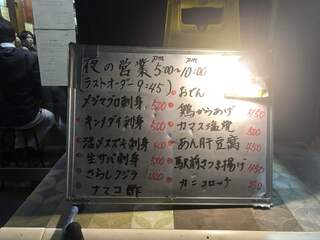 夜の営業 PM 5:00〜PM 10:00
ラストオーダー 9:45) おでん
メジマグロ刺身 500
キンメダイ刺身 500
沼メスズキ刺身
生サバ刺身 500
さらしクジラ
ナマコ酢
鶏からあげ 450
カマス塩焼 500
あん肝豆腐 450
駅前さつま揚げ 450
カニコロッケ 350